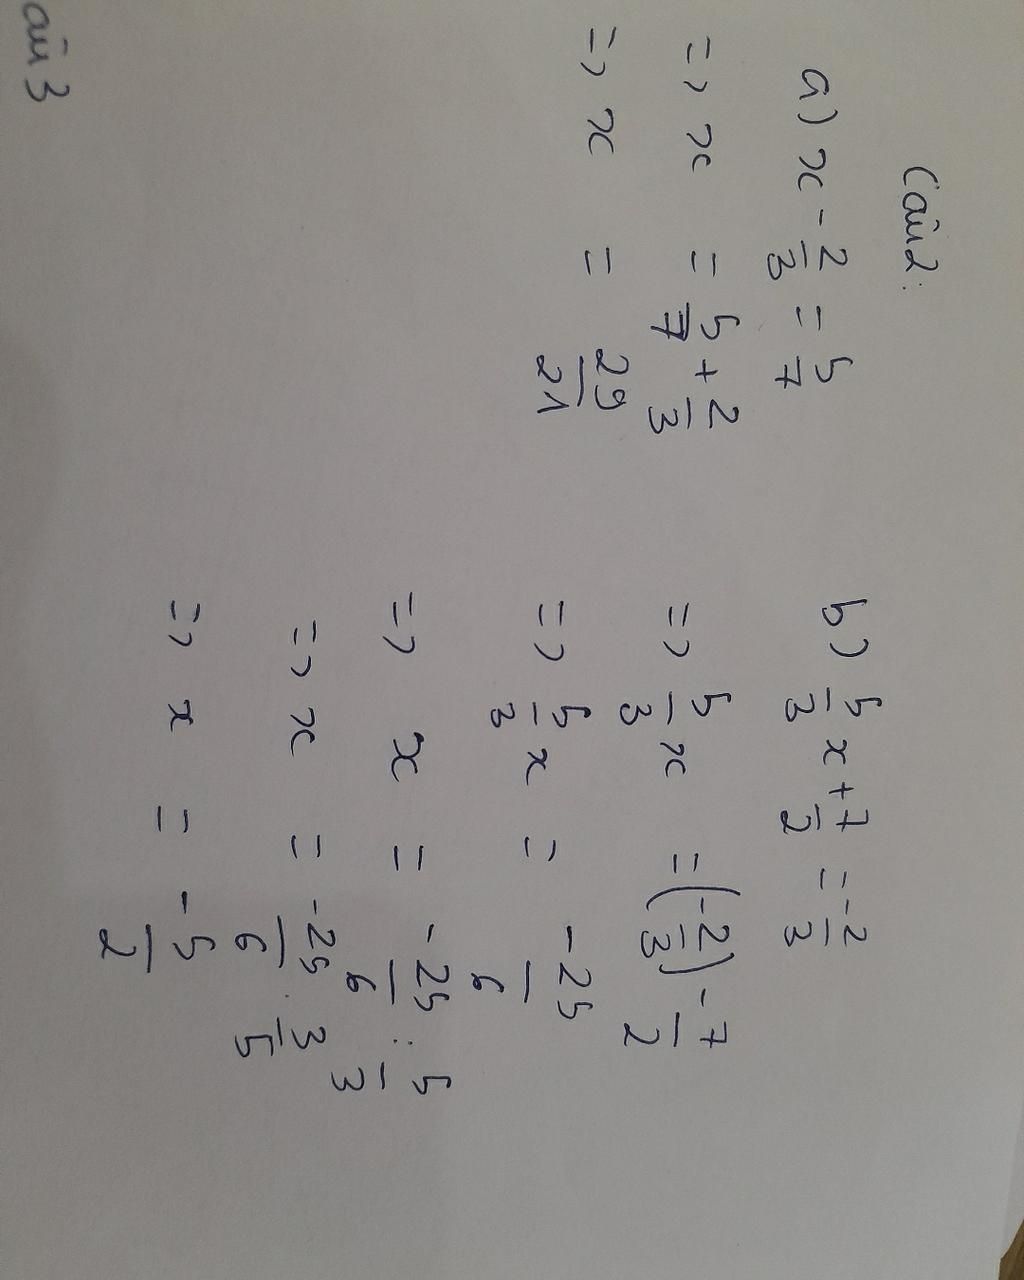 Câu 2:
a) x - 2/3 = 5/7
=> x = 5/7 + 2/3
=> x = 29/21
b) 5/3 x + 7/2 = -2/3
=> 5/3 x = (-2/3) - 7/2
=> 5/3 x = -25/6
=> x = -25/6 : 5/3
=> x = -25/6 . 3/5
=> x = -5/2
âu 3